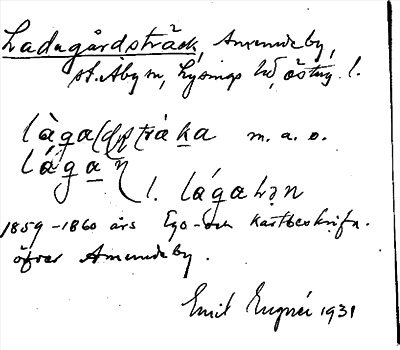 Ladugårdsträck, Amundeby,
st. Åby sn, Lysings hd, östrg. l.
làga(dṣ)tràka m. a. o.
lágaṇ
l. lágahən
1859-1860 års Ego- och Kartbeskrifn.
öfver Amundeby.
Emil Engnér 1931